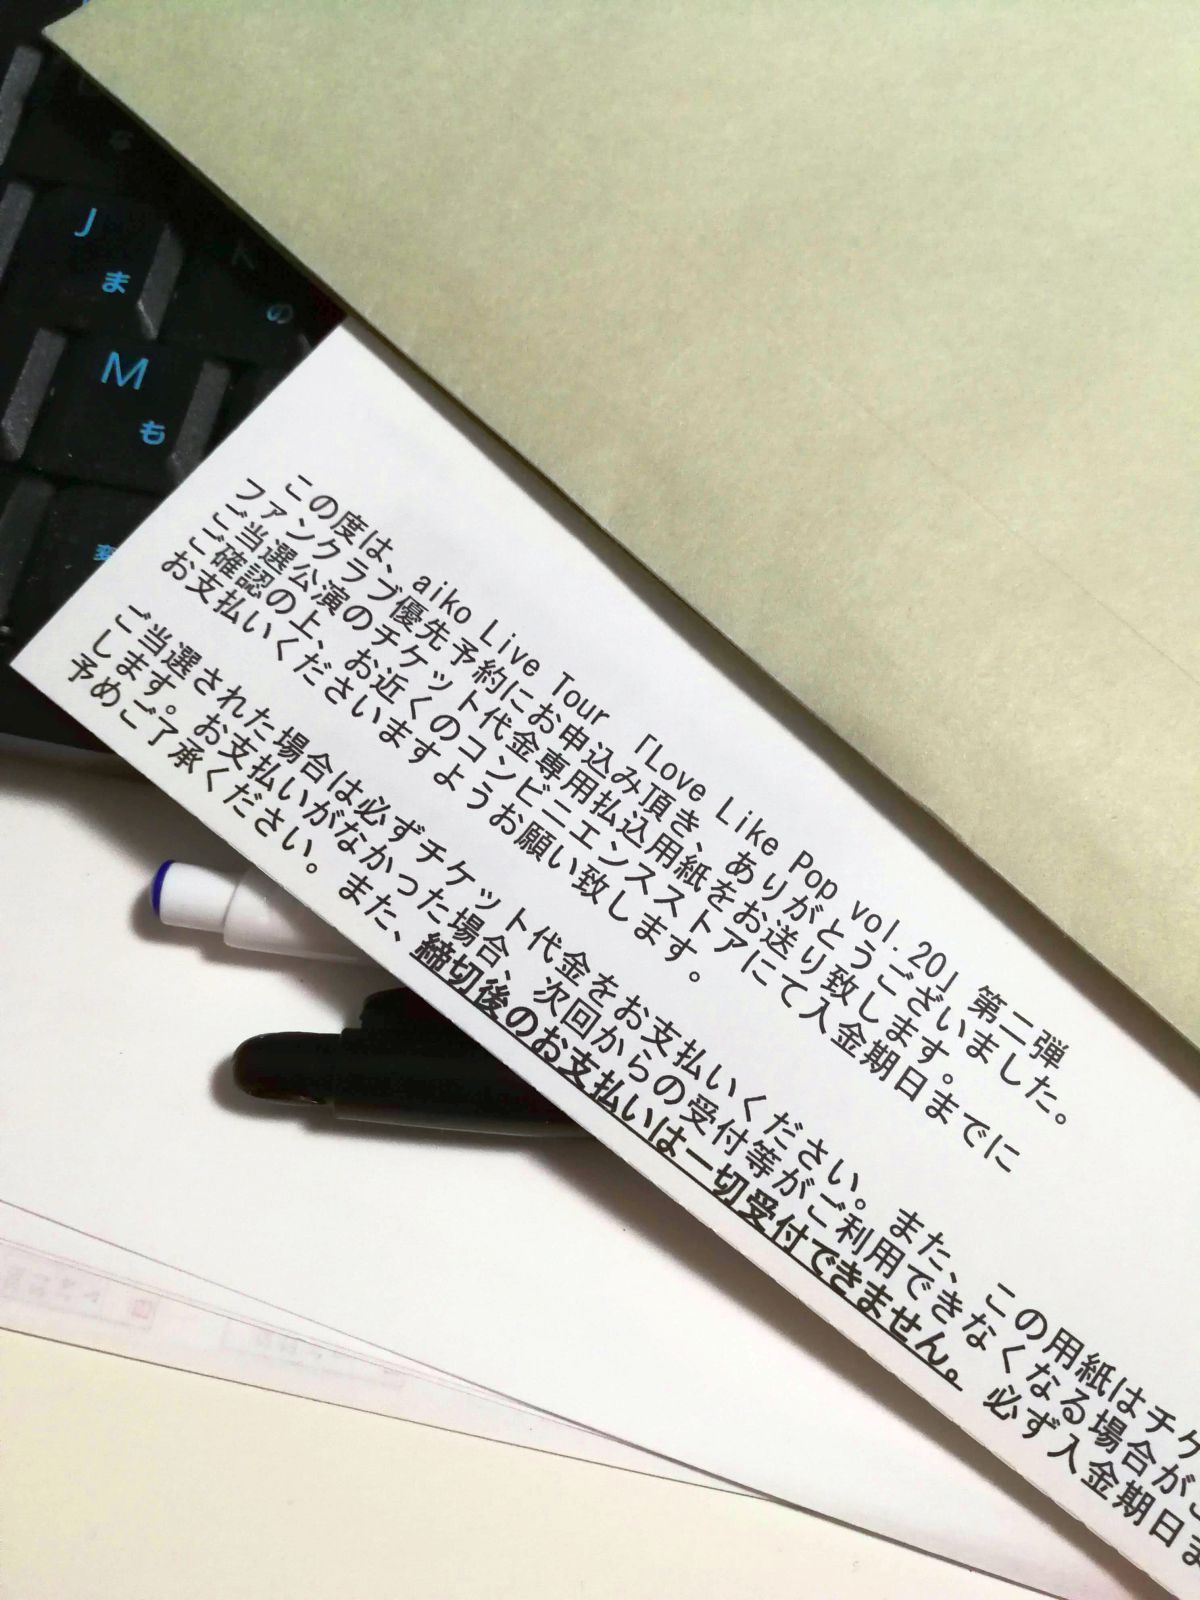 J
ま
の
M
も
変
この度は、aiko Live Tour 「Love Like Pop vol.20」第二弾
ファンクラブ優先予約にお申込み頂き、ありがとうございました。
ご当選公演のチケット代金専用払込用紙をお送り致します。
ご確認の上、お近くのコンビニエンスストアにて入金期日までに
お支払いくださいますようお願い致します。
ご当選された場合は必ずチケット代金をお支払いください。また、この用紙はチケ
します。お支払いがなかった場合、次回からの受付等がご利用できなくなる場合がご
予めご了承ください。また、締切後のお支払いは一切受付できません。必ず入金期日ま